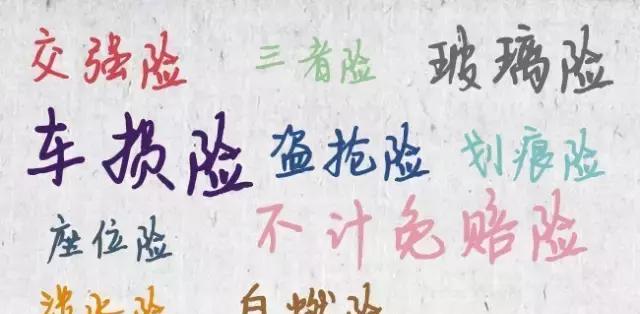 交强险 三者险 玻璃险
车损险 盗抢险 划痕险
座位险 不计免赔险
涉水险 自燃险